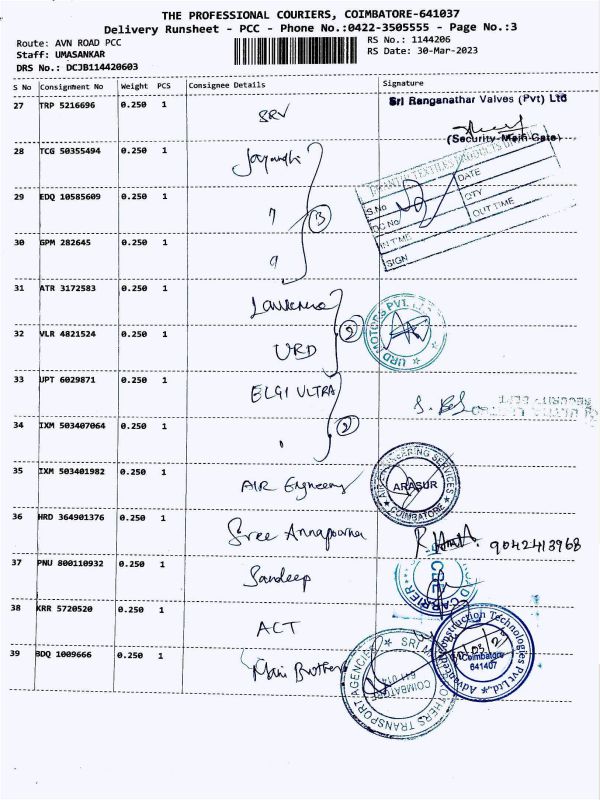 THE PROFESSIONAL COURIERS, COIMBATORE-641037
Delivery Runsheet - PCC - Phone No.:0422-3505555 - Page No.:3
Route: AVN ROAD PCC
RS No.: 1144206
Staff: UMASANKAR
RS Date: 30-Mar-2023
DRS No.: DCJB114420603
S No Consignment No Weight PCS Consignee Details Signature
27 TRP 5216696 0.250 1 SRV
Sri Ranganathar Valves (Pvt) Ltd
(Security Main Gate)
28 TCG 50355494 0.250 1
TEXTILES PRODUCTS
S.No DATE
DC No QTY
IN TIME OUT TIME
SIGN
29 EDQ 10585609 0.250 1 "
3
30 GPM 282645 0.250 1 "
31 ATR 3172583 0.250 1
URD MOTORS PVT. LTD
2
32 VLR 4821524 0.250 1 URD
33 UPT 6029871 0.250 1 ELGI ULTRA
SECURITY DEPT
2
34 IXM 503407064 0.250 1 "
35 IXM 503401982 0.250 1 AIR Engineers
AIR ENGINEERING SERVICES
ARASUR
COIMBATORE
36 HRD 364901376 0.250 1 Sree Annapoorna
9042413968
37 PNU 800110932 0.250 1 Sandeep
CBE
CARRIER
38 KRR 5720520 0.250 1 ACT
Advanced Construction Technologies Pvt Ltd.
Coimbatore
641407
39 BDQ 1009666 0.250 1 Mani Brothers
SRI MANI BROTHERS TRANSPORT AGENCIES
COIMBATORE